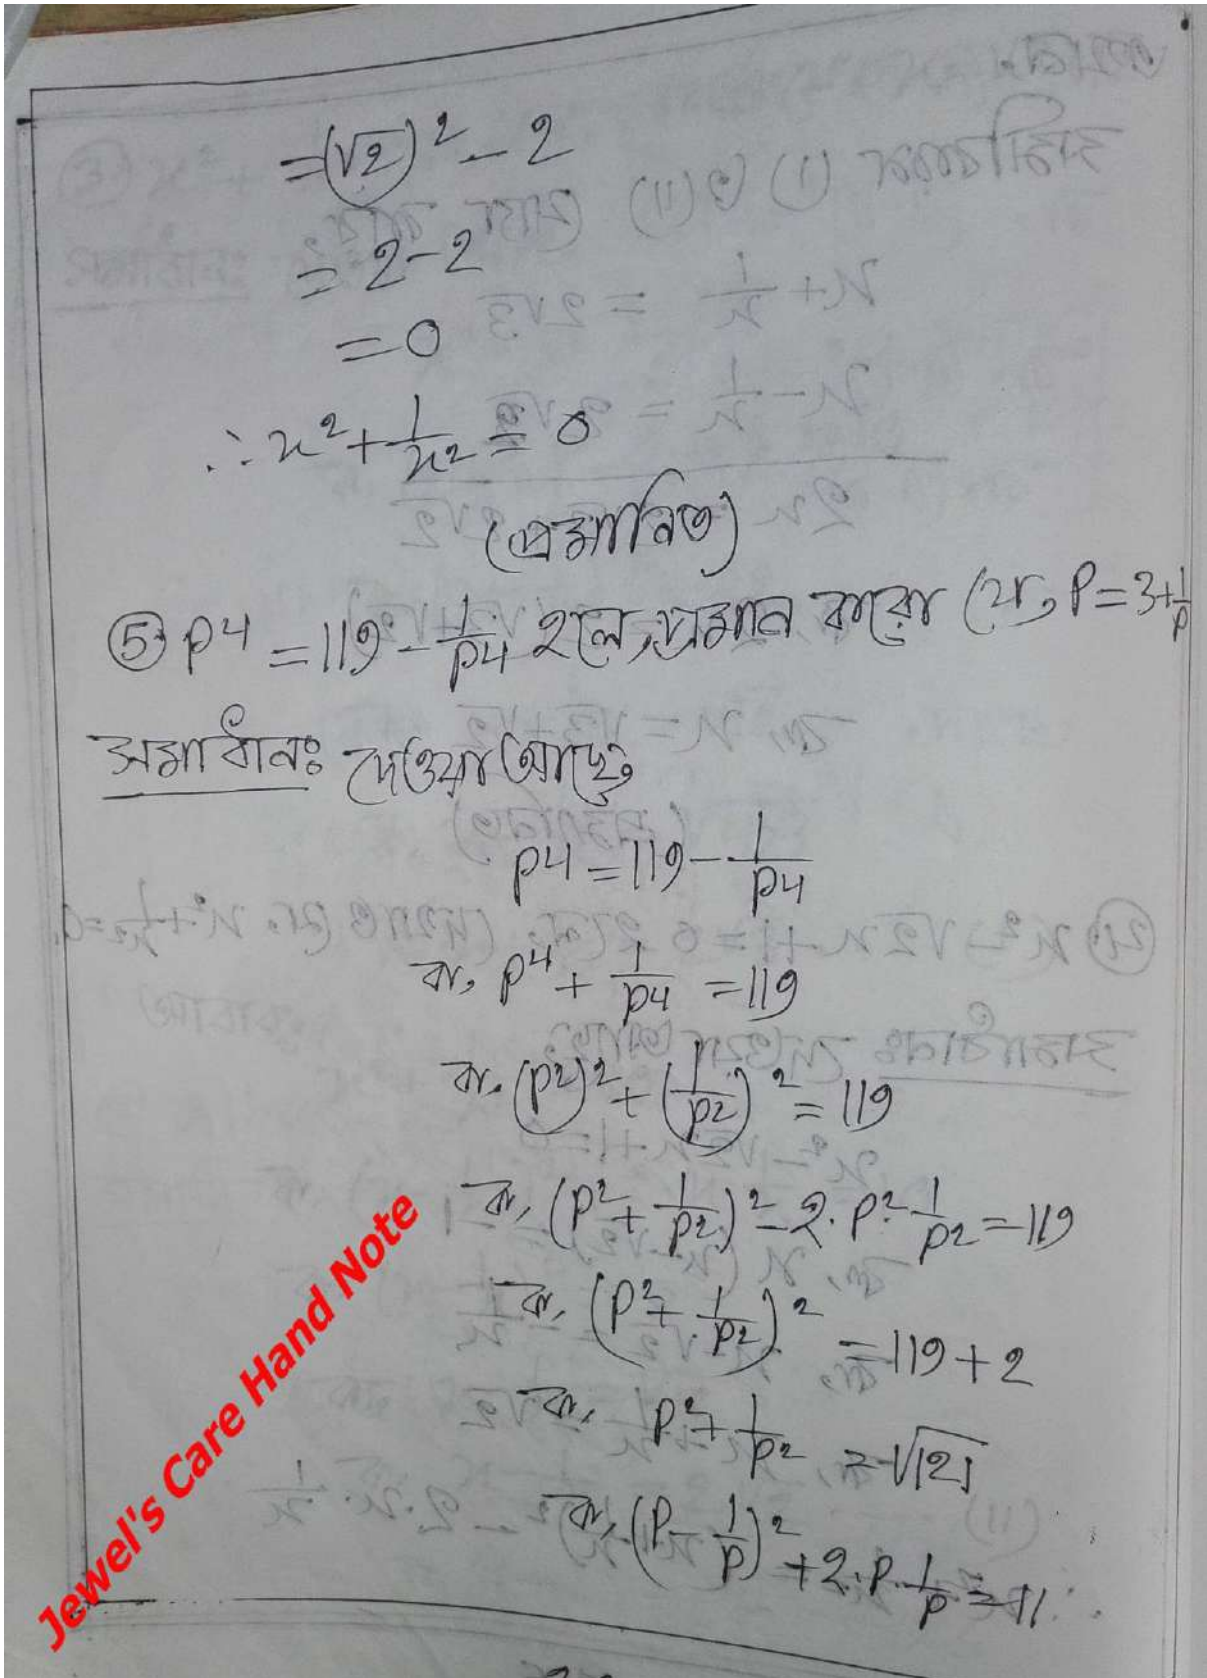 = (√2)² - 2
= 2-2
= 0
∴ x² + 1/x² = 0
(প্রমানিত)
⑤ P4 = 119 - 1/P4 হলে, প্রমান করো যে, P = 3+1/P
সমাধানঃ দেওয়া আছে,
P4 = 119 - 1/P4
বা, P4 + 1/P4 = 119
বা, (P2)² + (1/P2)² = 119
বা, (P² + 1/P2)² - 2. P². 1/P2 = 119
বা, (P² + 1/P2)² = 119 + 2
বা, P² + 1/P2 = √121
বা, (P - 1/P)² + 2.P. 1/P = 11
Jewel's Care Hand Note